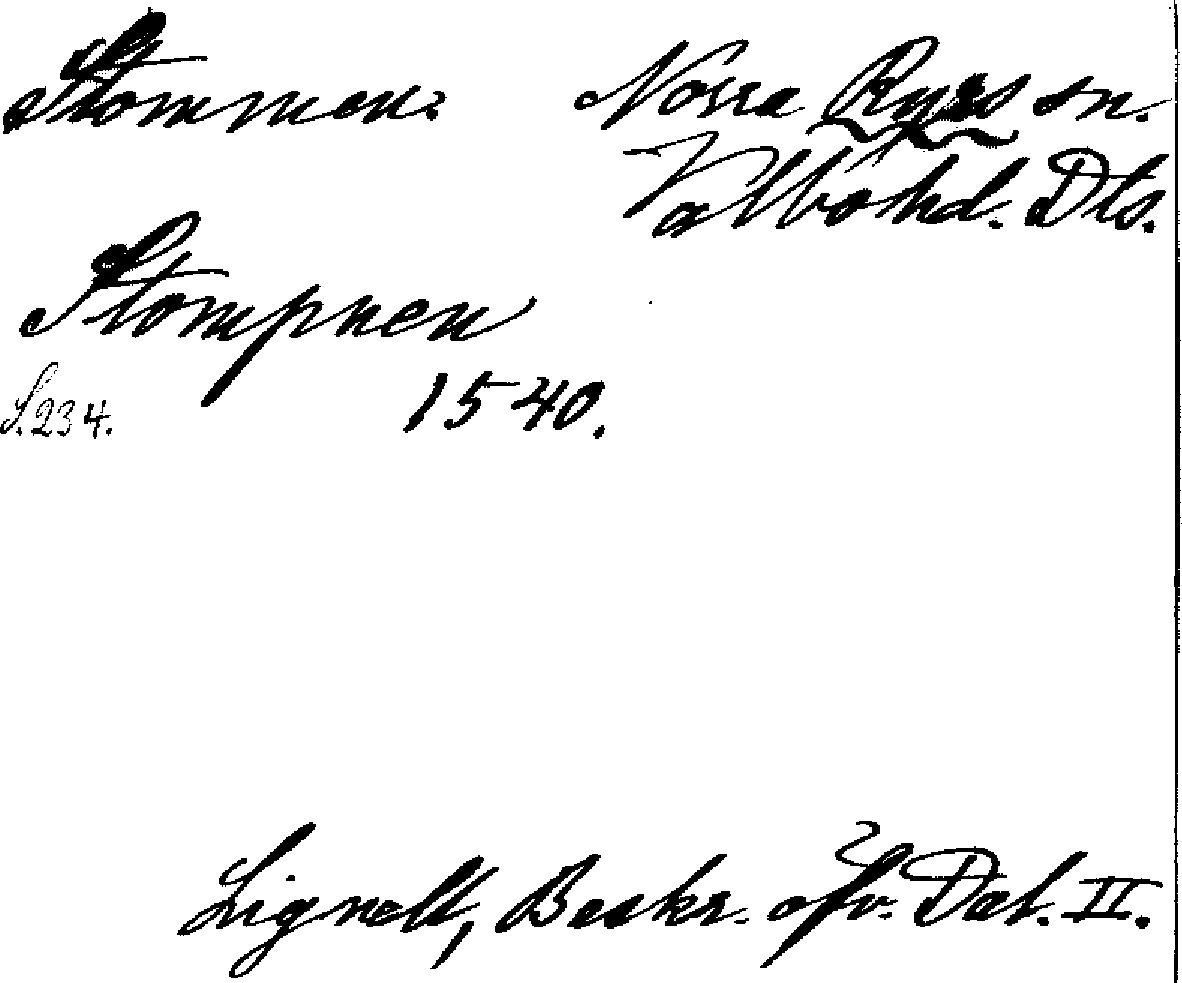 Stommen. Norra Ryrs sn.
Valbo hd. Dls.
Stompnen
S. 234. 1540.
Lignell, Beskr. öfv. Dal. II.